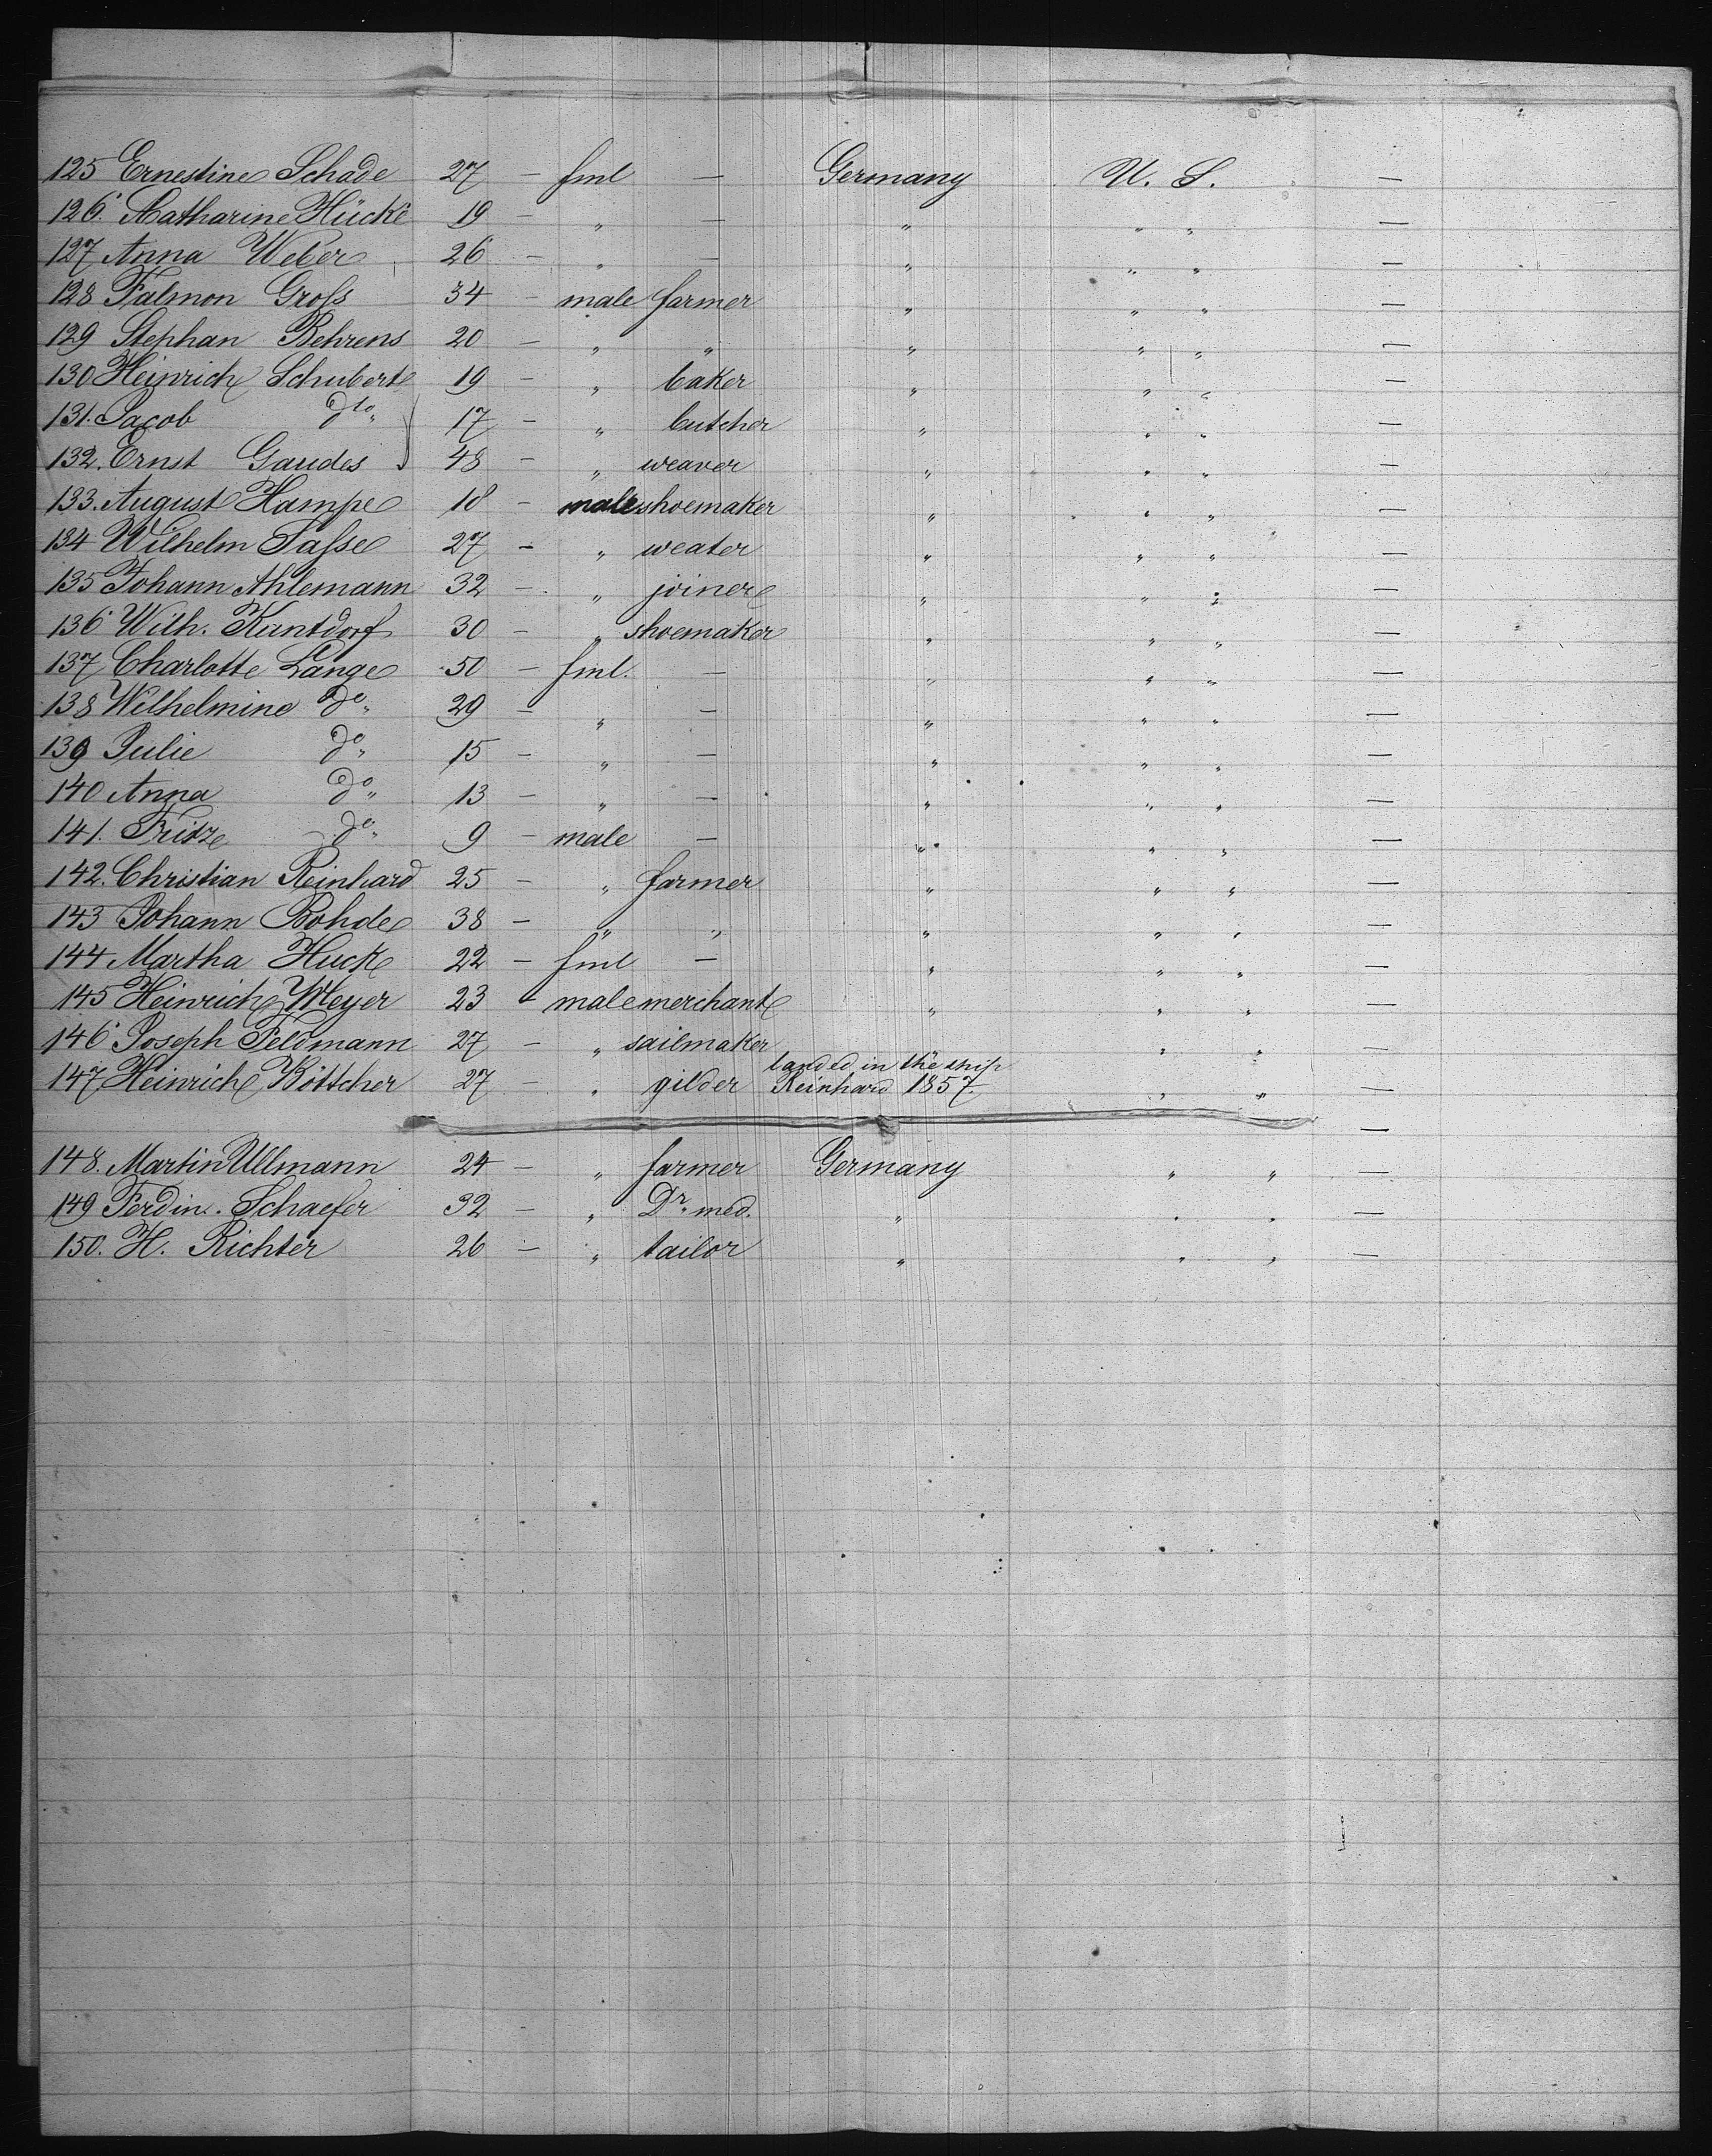 125 Ernestine Schade 27 — fml — Germany U. S. —
126. Catharine Hücke 19 — " — " " " —
127 Anna Weber 26 — " — " " " —
128 Falmon Groſs 34 — male farmer " " " —
129 Stephan Behrens 20 — " " " " " —
130 Heinrich Schubert 19 — " baker " " " —
131. Jacob dto 17 — " butcher " " " —
132. Ernst Gaudes 48 — " weaver " " " —
133. August Hampe 18 — male shoemaker " " " —
134 Wilhelm Saſse 27 — " weater " " " —
135 Johann Ahlemann 32 — " joiner " " " —
136 Wilh. Kuntdorf 30 — " shoemaker " " " —
137 Charlotte Lange 50 — fml. — " " " —
138 Wilhelmine do 29 — " — " " " —
139 Julie do 15 — " — " " " —
140 Anna do 13 — " — " " " —
141. Fritze do 9 — male — " " " —
142. Christian Reinhard 25 — " farmer " " " —
143 Johann Bohde 38 — " " " " " —
144 Martha Huck 22 — fml — " " " —
145 Heinrich Meyer 23 — male merchant " " " —
146 Joseph Feldmann 27 — " sailmaker " " —
landed in the ship
147 Heinrich Böttcher 27 — " gilder Reinhard 1857. " " —
—
148. Martin Ullmann 24 — " farmer Germany " " —
149 Ferdin. Schaefer 32 — " Dr. med. " " " —
150. H. Richter 26 — " tailor " " " —